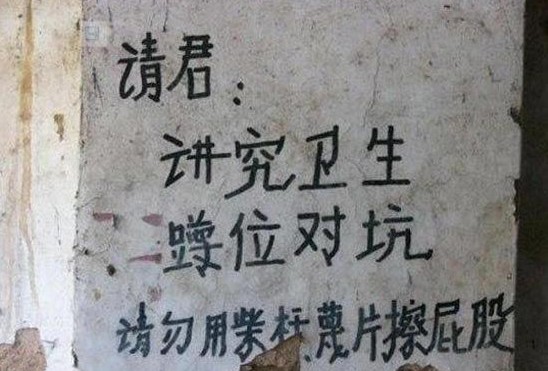 请君：
讲究卫生
蹲位对坑
请勿用柴杆、蔑片擦屁股